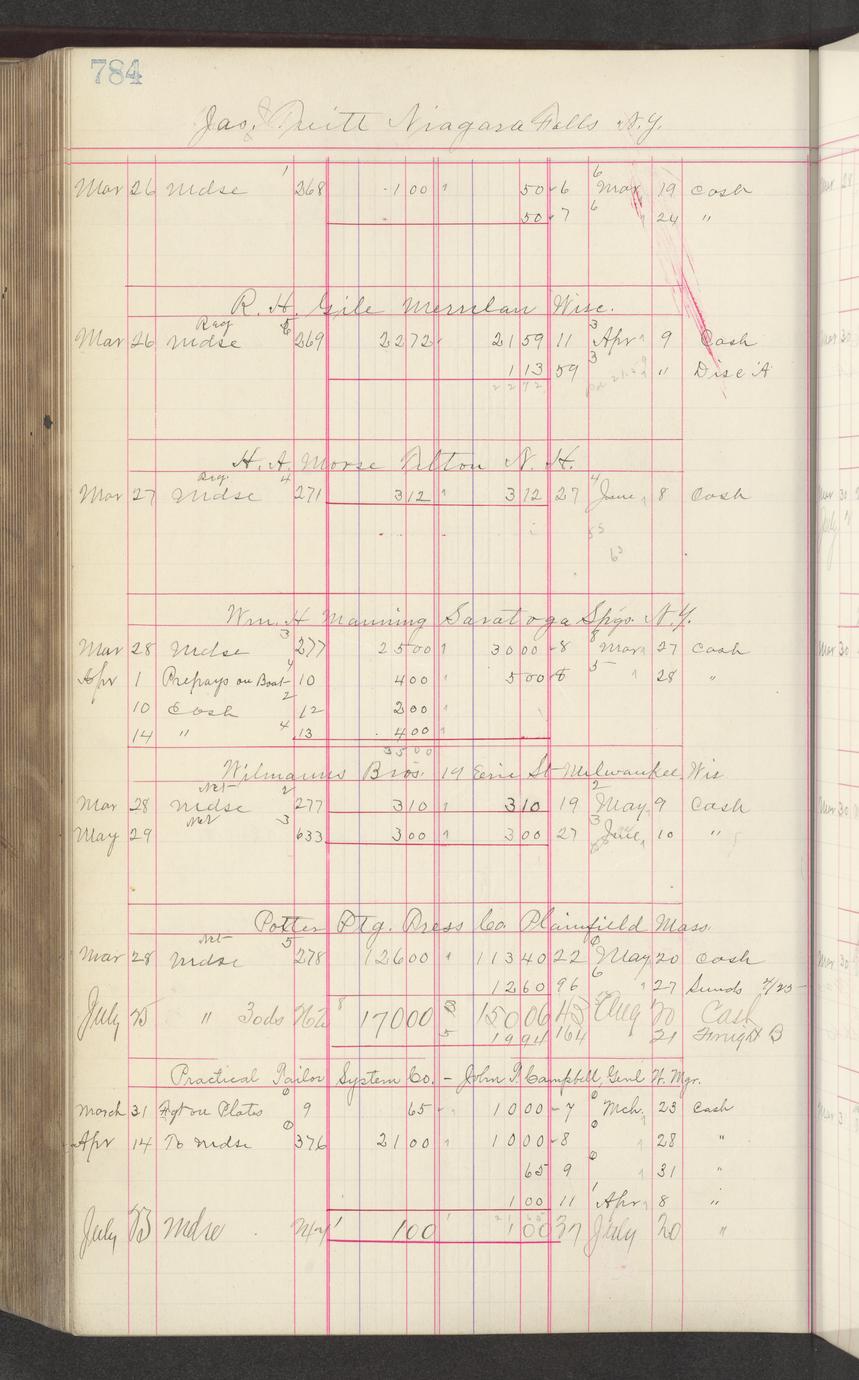 784
Jas. Niagara Falls N.Y.
Mar 26 Mdse 1 268 1 00 50 6 6 Mar 19 Cash
50 7 6 " 24 "
R. H. Gile Merrilan Wisc.
Reg
Mar 26 Mdse 5 269 22 72 21 59 11 3 Apr 9 Cash
1 13 59 3 " " Disc A
22 72
H. A. Morse Tilton N. H.
Reg.
Mar 27 Mdse 4 271 3 12 3 12 27 4 June 8 Cash
Wm. H Manning Saratoga Spgs. N.Y.
Mar 28 Mdse 3 277 25 00 30 00 8 8 Mar 27 Cash
Apr 1 Prepays on Boat 4 10 4 00 5 00 8 5 " 28 "
10 Cash 2 12 2 00
14 " 4 13 4 00
35 00
Wilmanns Bros. 19 Erie St Milwaukee, Wis
Net
Mar 28 Mdse 2 277 3 10 3 10 19 2 May 9 Cash
Net
May 29 3 633 3 00 3 00 27 3 June 10 "
Potter Ptg. Press Co Plainfield Mass.
Net
Mar 28 Mdse 5 278 126 00 113 40 22 0 May 20 Cash
12 60 96 6 " 27 Sunds 7/23
July 25 " 30ds 762 8 170 00 3 150 06 45 Aug 20 Cash
5 19 94 164 21 Freight B
Practical Tailor System Co. - John P. Campbell, Genl W. Mgr.
March 31 Fgt on Plates 0 9 65 10 00 7 0 Mch. 23 Cash
Apr 14 To Mdse 0 376 21 00 10 00 8 0 " 28 "
65 9 0 " 31 "
1 00 11 1 Apr 8 "
July 23 Mdse 1 1 00 1 1 00 37 July 20 "